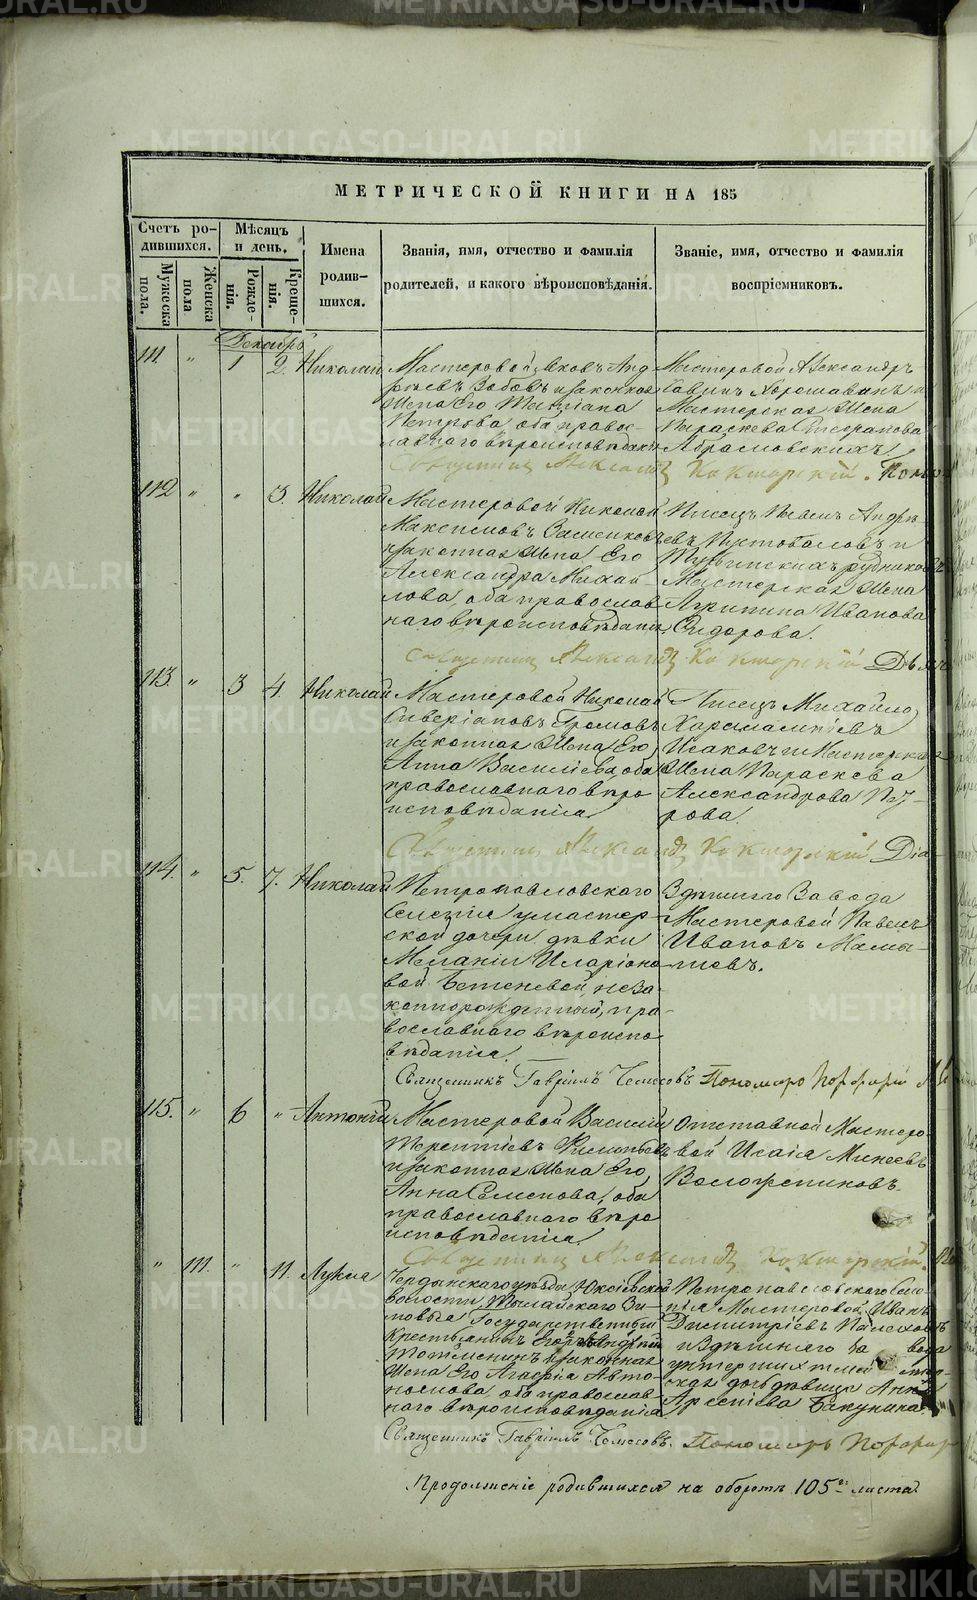 METRIKI.GASO-URAL.RU
МЕТРИЧЕСКОЙ КНИГИ НА 185
Счетъ ро-
дившихся.
Мѣсяцъ
и день.
Мужеска
пола.
Женска
пола
Рожде-
нія.
Креще-
нія.
Имена
родив-
шихся.
Званія, имя, отчество и фамилія
родителей, и какого вѣроисповѣданія.
Званіе, имя, отчество и фамилія
воспріемниковъ.
Декабрь
111 " 1 2 Николай
Мастеровой Яковъ Анд
реевъ Бобовъ и законная
Жена Его Татіана
Петрова, оба право-
славнаго вѣроисповѣданія
Мастеровой Александръ
Савинъ Хорошавинъ и
Мастерская Жена
Параскева Стефанова
Абрамовскихъ
Священникъ Александръ Кокшарскій. Поном
112 " " 3 Николай
Мастеровой Николай
Максимовъ
и законная Жена Его
Александра Михай-
лова, оба православ
наго вѣроисповѣданія
Писецъ Павелъ Андре
евъ Пустоваловъ и
Турьинскихъ рудниковъ
Мастерская Жена
Агрипина Иванова
Сидорова.
Священникъ Александръ Кокшарскій Дьяч
113 " 3 4 Николай
Мастеровой Николай
Сиверіановъ Громовъ
и законная Жена Его
Анна Василіева, оба
православнаго вѣро
исповѣданія
Писецъ Михайло
Харалампіевъ
Исаковъ и Мастерская
Жена Параскева
Александрова Пет-
рова.
Священникъ Александръ Кокшарскій Діа-
114. " 5. 7. Николай
Петропавловскаго
Селенія у мастер-
ской дочери дѣвки
Меланіи Иларіоно-
вой Бетеневой неза-
коннорожденный, пра-
вославнаго вѣроиспо
вѣданія.
Здѣшняго Завода
Мастеровой Павелъ
Ивановъ Мамы-
шевъ.
Священникъ Гавріилъ Чемесовъ Пономарь Порфирій
115. " 6 " Антоній
Мастеровой Василій
Терентіевъ Филиповъ
и законная Жена Его
Анна Семенова, оба
православнаго вѣро
исповѣданія
Отставной Мастеро-
вой Исаія Минеевъ
Вологжениковъ.
Священникъ Александръ Кокшарскій.
" 111. " 11. Лукіа
Чердынскаго уѣзда Юксѣевской
волости,
Государственный
Крестьянинъ Егоръ
и законная
Жена Его Агафія Авто-
номова, оба православ
наго вѣроисповѣданія
Петропавловскаго Селе-
нія Мастеровой Иванъ
Димитріевъ Палеховъ
и Здѣшняго завода
дочь дѣвица Анна
Арсеніева Бакунина
Священникъ Гавріилъ Чемесовъ. Пономарь Порфир
Продолженіе родившихся на оборотѣ 105го листа.